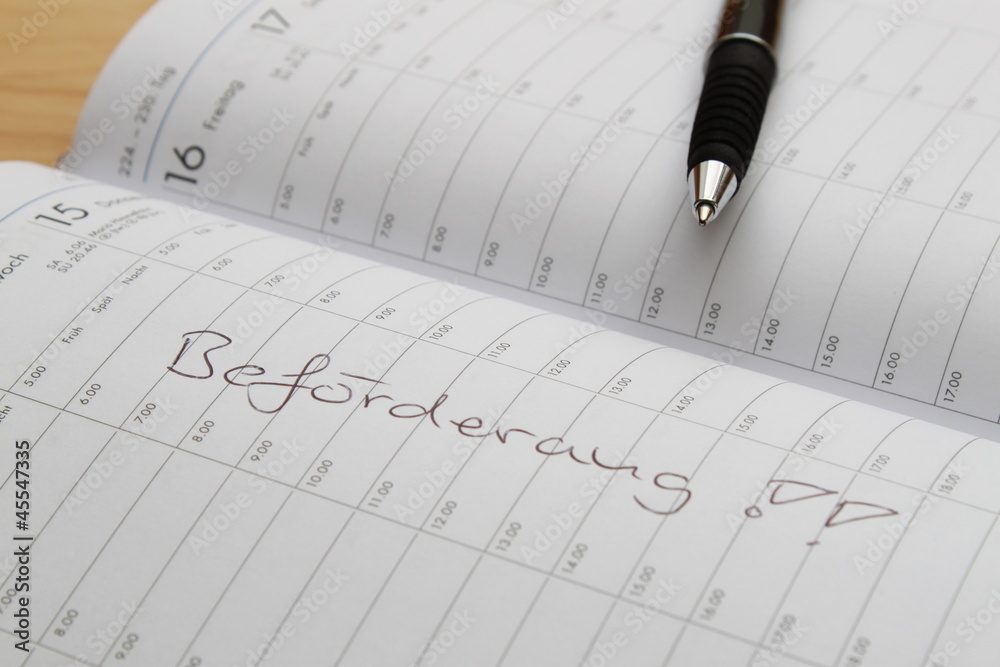 17
224. – 230. Tag
16 Freitag
Früh Spät Nacht
5.00 6.00 7.00 8.00 9.00 10.00 11.00 12.00 13.00 14.00 15.00 16.00 17.00
15
SA 6.06
SU 20.46
Mariä Himmelfahrt
Früh Spät Nacht
5.00 6.00 7.00 8.00 9.00 10.00 11.00 12.00 13.00 14.00 15.00 16.00 17.00 18.00
Beförderung !!
5.00 6.00 7.00 8.00 9.00 10.00 11.00 12.00 13.00 14.00 15.00 16.00 17.00
8.00 9.00
Adobe Stock | #45547335